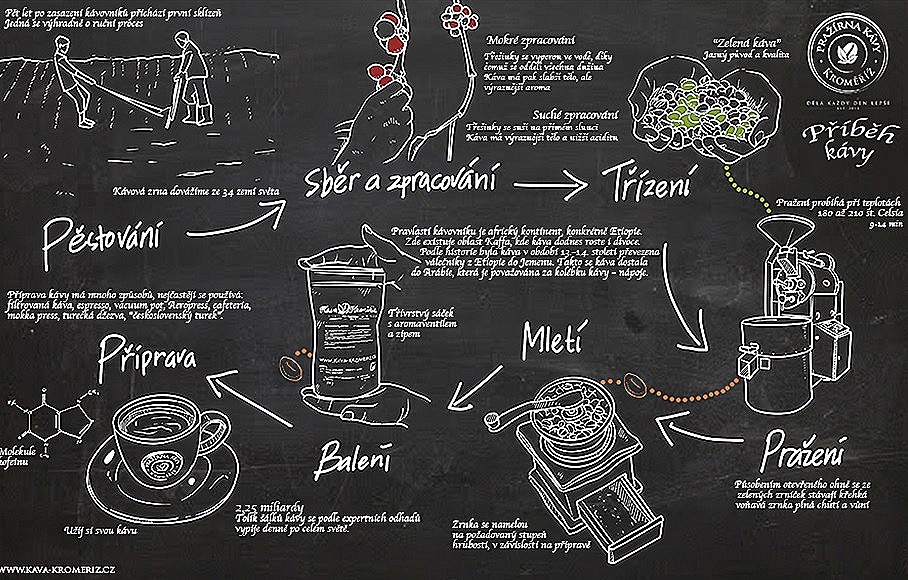 Pět let po zasazení kávovníků přichází první sklizeň
Jedná se výhradně o ruční proces
Kávová zrna dovážíme ze 34 zemí světa
Pěstování
Sběr a zpracování
Mokré zpracování
Třešinky se vyperou ve vodě, díky
čemuž se oddělí všechna dužina
Káva má pak slabší tělo, ale
výraznější aroma
Suché zpracování
Třešinky se suší na přímém slunci
Káva má výraznější tělo a nižší aciditu
"Zelená káva"
Jasný původ a kvalita
Třízení
PRAŽÍRNA KÁVY
KROMĚŘÍŽ
DĚLÁ KAŽDÝ DEN LEPŠÍ
Příběh
kávy
Pražení probíhá při teplotách
180 až 210 st. Celsia
9-14 min
Pravlastí kávovníku je africký kontinent, konkrétně Etiopie.
Zde existuje oblast Kaffa, kde káva dodnes roste i divoce.
Podle historie byla káva v období 13.-14. století převezena
válečníky z Etiopie do Jemenu. Takto se káva dostala
do Arábie, která je považována za kolébku kávy - nápoje.
Pražení
Působením otevřeného ohně se ze
zelených zrníček stávají křehká
voňavá zrna plná chutí a vůní
Mletí
Zrnka se namelou
na požadovaný stupeň
hrubosti, v závislosti na přípravě
Třívrstvý sáček
s aromaventilem
a zipem
Káva Kroměříž
WWW.KAVA-KROMERIZ.CZ
Balení
2,25 miliardy
Tolik šálků kávy se podle expertních odhadů
vypije denně po celém světě.
Příprava kávy má mnoho způsobů, nejčastěji se používá:
filtrovaná káva, espresso, vacuum pot, Aeropress, cafeteria,
mokka press, turecká džezva, "československý turek".
Příprava
Molekule
kofeinu
Užij si svou kávu
WWW.KAVA-KROMERIZ.CZ